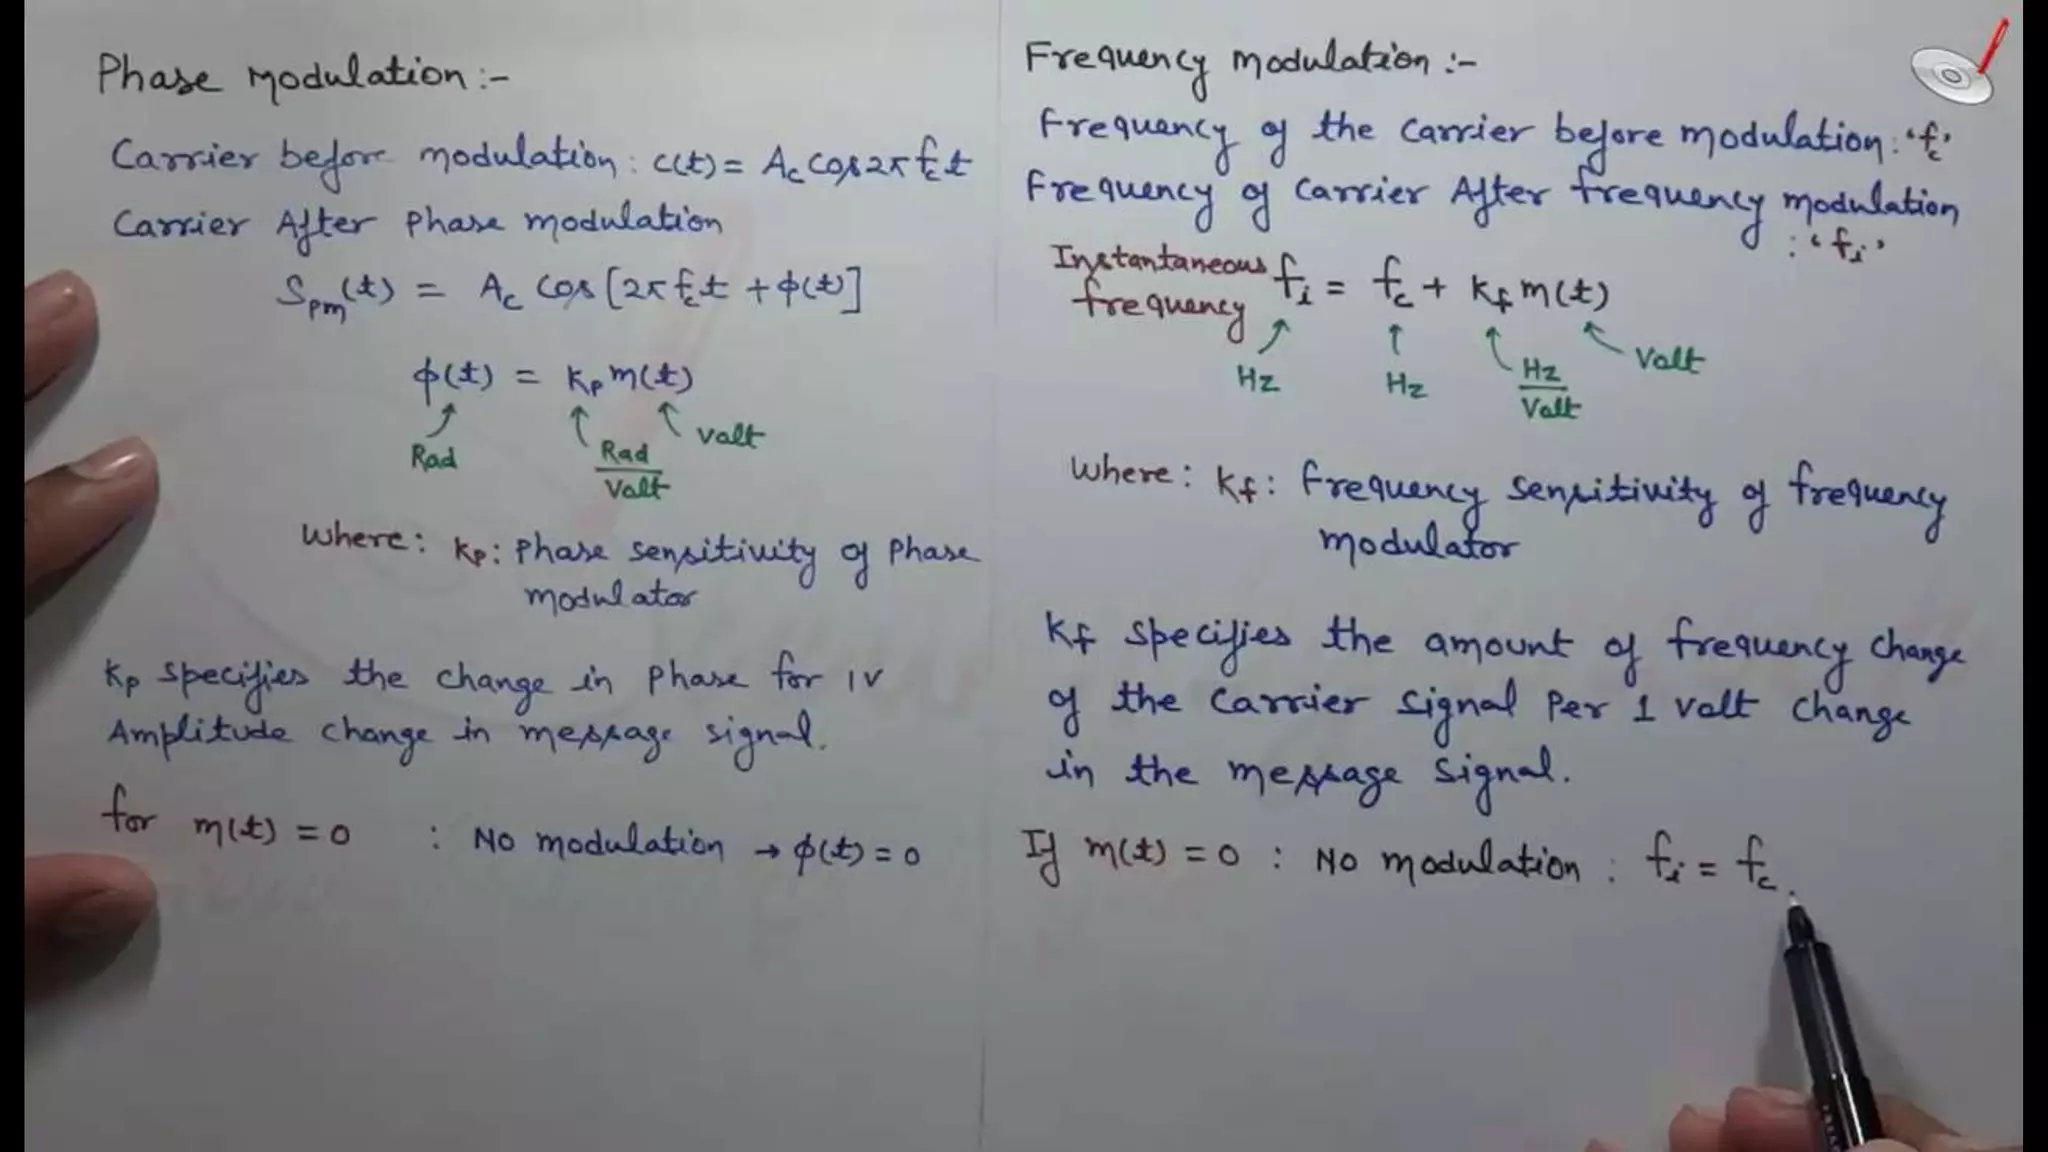 Phase modulation:-
Carrier before modulation: c(t) = Ac cos2πfct
Carrier After Phase modulation
Spm(t) = Ac cos[2πfct + φ(t)]
φ(t) = kp m(t)
Rad
Rad
Volt
Volt
where: kp: Phase sensitivity of Phase
modulator
kp specifies the change in Phase for 1V
Amplitude change in message signal.
for m(t) = 0 : No modulation → φ(t) = 0
Frequency modulation:-
Frequency of the carrier before modulation: 'fc'
Frequency of carrier After frequency modulation
: 'fi'
Instantaneous
frequency
fi = fc + kf m(t)
Hz
Hz
Hz
Volt
Volt
where: kf: frequency sensitivity of frequency
modulator
kf specifies the amount of frequency change
of the carrier signal Per 1 volt change
in the message signal.
If m(t) = 0 : No modulation : fi = fc.